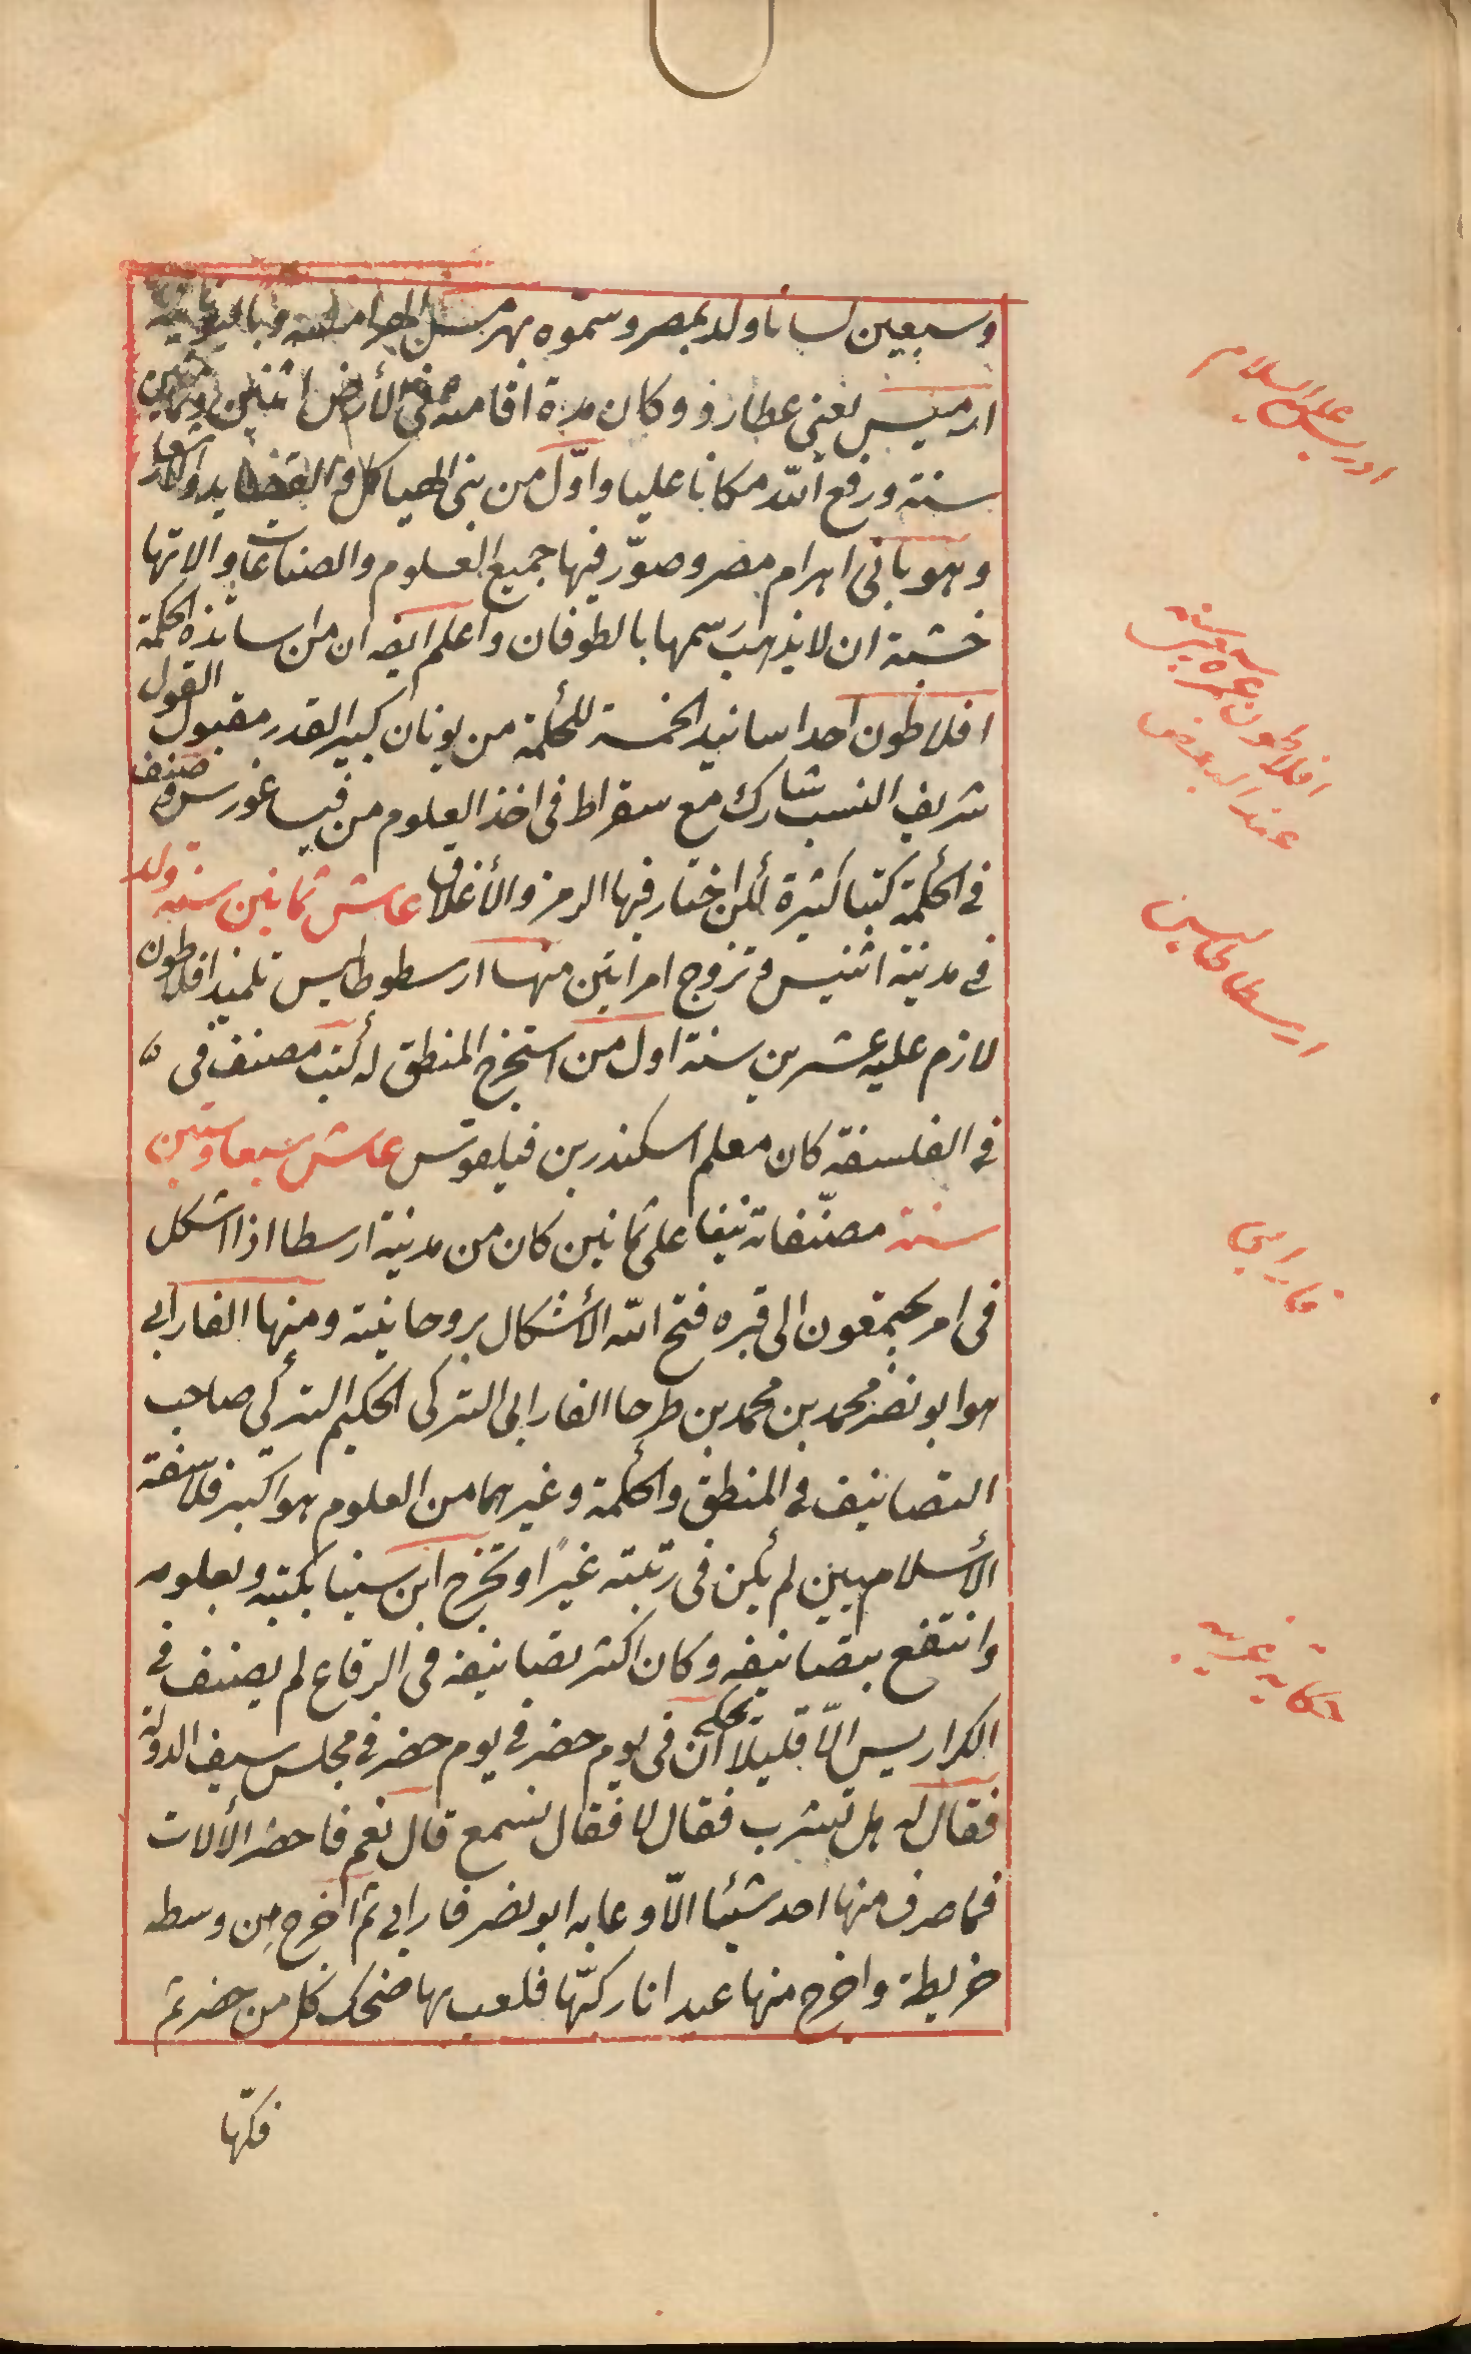 وسبعين لسانا ولد بمصر وسموه بهرمس الهرامسة وباليونانية
ارميس يعنى عطارد وكان مدة اقامته فى الأرض اثنين وثمانين
سنة ورفع الله مكانا عليا واوّل من بنى الهياكل و
وهو بانى اهرام مصر وصوّر فيها جميع العلوم والصناعات والاتها
خشية ان لا يذهب رسمها بالطوفان واعلم ايضه ان من اساتذه الحكمة
افلاطون احد اسانيد الخمسة للحكمة من يونان كبير القدر مقبول القول
شريف النسب شارك مع سقراط فى اخذ العلوم من فيساغورس وصنف
فى الحكمة كتبا كثيرة لكن اختار فيها الرمز والأغلاق عاش ثمانين سنة ولد
فى مدينة اثنيس وتزوج امراتين منها ارسطوطاليس تلميذ افلاطون
لازم عليه عشرين سنة اول من استخرج المنطق له كتب مصنف فى
فى الفلسفة كان معلم اسكندر بن فيلقوس عاش سبعا وستين
سنة مصنّفاته نيفا على ثمانين كان من مدينة ارسطا اذا اشكل
فى امر يجتمعون الى قبره فتح الله الأشكال بروحانيته ومنها الفارابى
هو ابو نصر محمد بن محمد بن طرحا الفارابى التركى الحكيم التركى صاحب
التصانيف فى المنطق والحكمة وغيرهما من العلوم هو اكبر فلاسفة
الأسلاميين لم يكن فى رتبته غيرًا وتخرج ابن سينا بكتبه وبعلومه
وانتفع بتصانيفه وكان اكثر تصانيفه فى الرقاع لم يصنف فى
الكراريس الّا قليلًا يحكى ان فى يوم حضر فى يوم حضر فى مجلس سيف الدولة
فقال له هل تشرب فقال لا فقال تسمع قال نعم فاحضر الألات
فما صرف منها احد شيئا الّا وعابه ابو نصر فارابى ثم اخرج من وسطه
خريطة واخرج منها عيدانا ركبّها فلعب بها ضحك كل من حضر ثم
فكّها
ادريس عليه السلام
افلاطون عمره
ارسطاطاليس
فارابى
حكاية غريبه